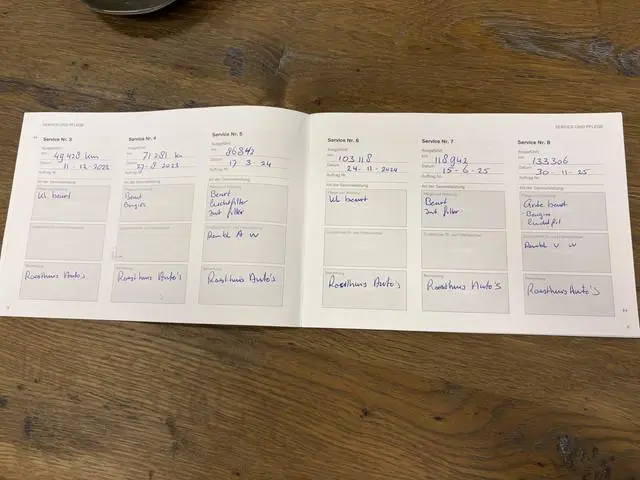 SERVICE UND PFLEGE
Service Nr. 3
Ausgeführt:
km 49 428 km
Datum 11-12-2022
Auftrag Nr.
Art der Serviceleistung
Kl beurt
Roosthuis Auto's
Service Nr. 4
Ausgeführt:
km 71 281 km
Datum 27-8 2023
Auftrag Nr.
Art der Serviceleistung
Beurt
Bougies
Roosthuis Auto's
Service Nr. 5
Ausgeführt:
km 86842
Datum 17-3-24
Auftrag Nr.
Art der Serviceleistung
Beurt
Luchtfilter
Int filter
Remblk A W
Roosthuis Auto's
SERVICE UND PFLEGE
Service Nr. 6
Ausgeführt:
km 103118
Datum 24-11-2024
Auftrag Nr.
Art der Serviceleistung
Kl beurt
Roosthuis Auto's
Service Nr. 7
Ausgeführt:
km 118942
Datum 15-6-25
Auftrag Nr.
Art der Serviceleistung
Beurt
Int filter
Roosthuis Auto's
Service Nr. 8
Ausgeführt:
km 133306
Datum 30-11-25
Auftrag Nr.
Art der Serviceleistung
Grote beurt
- Bougies
Luchtfil
Remblk V W
Roosthuis Auto's